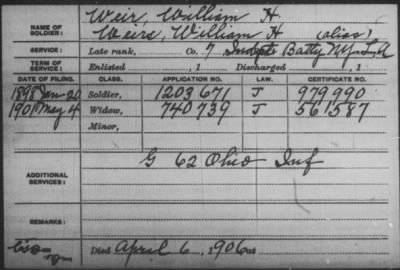 NAME OF SOLDIER: Weir, William H.
Weirs, William H. (alias)
SERVICE: Late rank, Co. 7 Indept Batty NY. L.A
TERM OF SERVICE: Enlisted , 1 Discharged , 1
DATE OF FILING. CLASS. APPLICATION NO. LAW. CERTIFICATE NO.
1898 Jan-20 Soldier, 1203671 J 979990
1901 May 4 Widow, 740739 J 561587
Minor,
ADDITIONAL SERVICES: G 62 Ohio Inf
REMARKS:
Died April 6, 1906 at